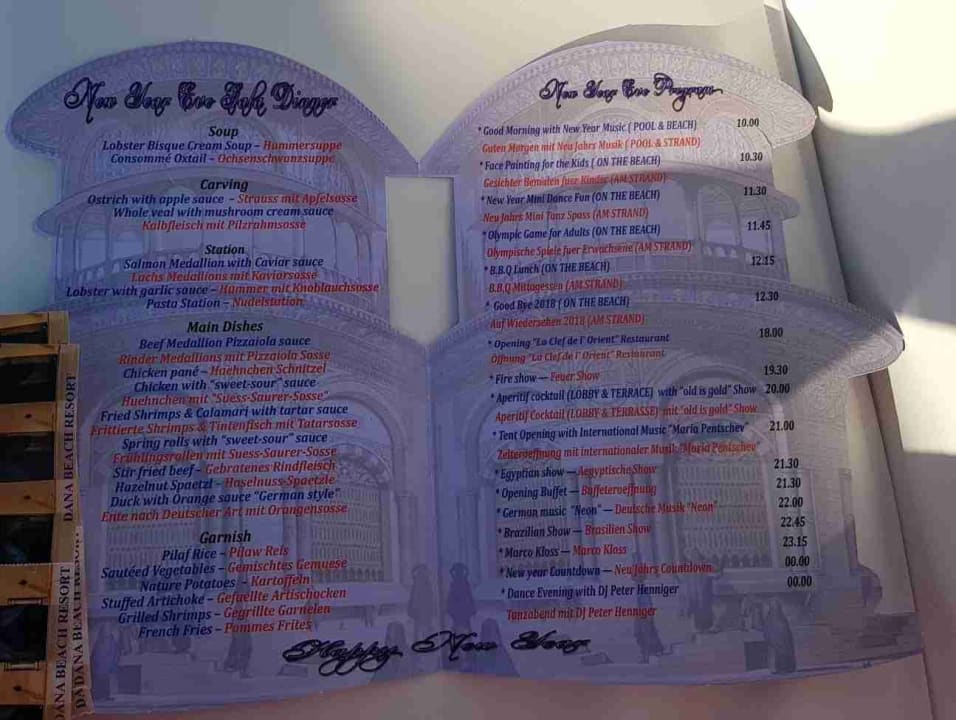 New Year Eve Gala Dinner
Soup
Lobster Bisque Cream Soup – Hummersuppe
Consommé Oxtail – Ochsenschwanzsuppe
Carving
Ostrich with apple sauce – Strauss mit Apfelsosse
Whole veal with mushroom cream sauce
Kalbfleisch mit Pilzrahmsosse
Station
Salmon Medallion with Caviar sauce
Lachs Medallions mit Kaviorsosse
Lobster with garlic sauce – Hammer mit Knoblauchsosse
Pasta Station – Nudelstation
Main Dishes
Beef Medallion Pizzaiola sauce
Rinder Medallions mit Pizzaiola Sosse
Chicken pané – Huehnchen Schnitzel
Chicken with "sweet-sour" sauce
Huehnchen mit "Suess-Saurer-Sosse"
Fried Shrimps & Calamari with tartar sauce
Frittierte Shrimps & Tintenfisch mit Tatarsosse
Spring rolls with "sweet-sour" sauce
Frühlingsrollen mit Suess-Saurer-Sosse
Stir fried beef – Gebratenes Rindfleisch
Hazelnut Spaetzl – Haselnuss-Spaetzle
Duck with Orange sauce "German style"
Ente nach Deutscher Art mit Orangensosse
Garnish
Pilaf Rice – Pilaw Reis
Sautéed Vegetables – Gemischtes Gemuese
Nature Potatoes – Kartoffeln
Stuffed Artichoke – Gefuellte Artischocken
Grilled Shrimps – Gegrillte Garnelen
French Fries – Pommes Frites
New Year Eve Program
* Good Morning with New Year Music ( POOL & BEACH) 10.00
Guten Morgen mit Neu Jahrs Musik ( POOL & STRAND)
* Face Painting for the Kids ( ON THE BEACH) 10.30
Gesichter Bemalen fuer Kinder (AM STRAND)
* New Year Mini Dance Fun (ON THE BEACH) 11.30
Neu Jahrs Mini Tanz Spass (AM STRAND)
* Olympic Game for Adults (ON THE BEACH) 11.45
Olympische Spiele fuer Erwachsene (AM STRAND)
* B.B.Q Lunch (ON THE BEACH) 12.15
B.B.Q Mittagessen (AM STRAND)
* Good Bye 2018 ( ON THE BEACH) 12.30
Auf Wiedersehen 2018 (AM STRAND)
* Opening "La Clef de l' Orient" Restaurant 18.00
Öffnung "La Clef de l' Orient" Restaurant
* Fire show — Feuer Show 19.30
* Aperitif cocktail (LOBBY & TERRACE) with "old is gold" Show 20.00
Aperitif Cocktail (LOBBY & TERRASSE) mit "old is gold" Show
* Tent Opening with International Music "Maria Pentschev" 21.00
Zelteroeffnung mit internationaler Musik "Maria Pentschev"
* Egyptian show — Aegyptische Show 21.30
* Opening Buffet — Buffeteroeffnung 21.30
* German music "Neon" — Deutsche Musik "Neon" 22.00
* Brazilian Show — Brasilien Show 22.45
* Marco Kloss — Marco Kloss 23.15
* New year Countdown — Neu Jahrs Countdown 00.00
* Dance Evening with DJ Peter Henniger 00.00
Tanzabend mit DJ Peter Henniger
Happy New Year
DANA BEACH RESORT
DANA BEACH RESORT
DANA BEACH RESORT